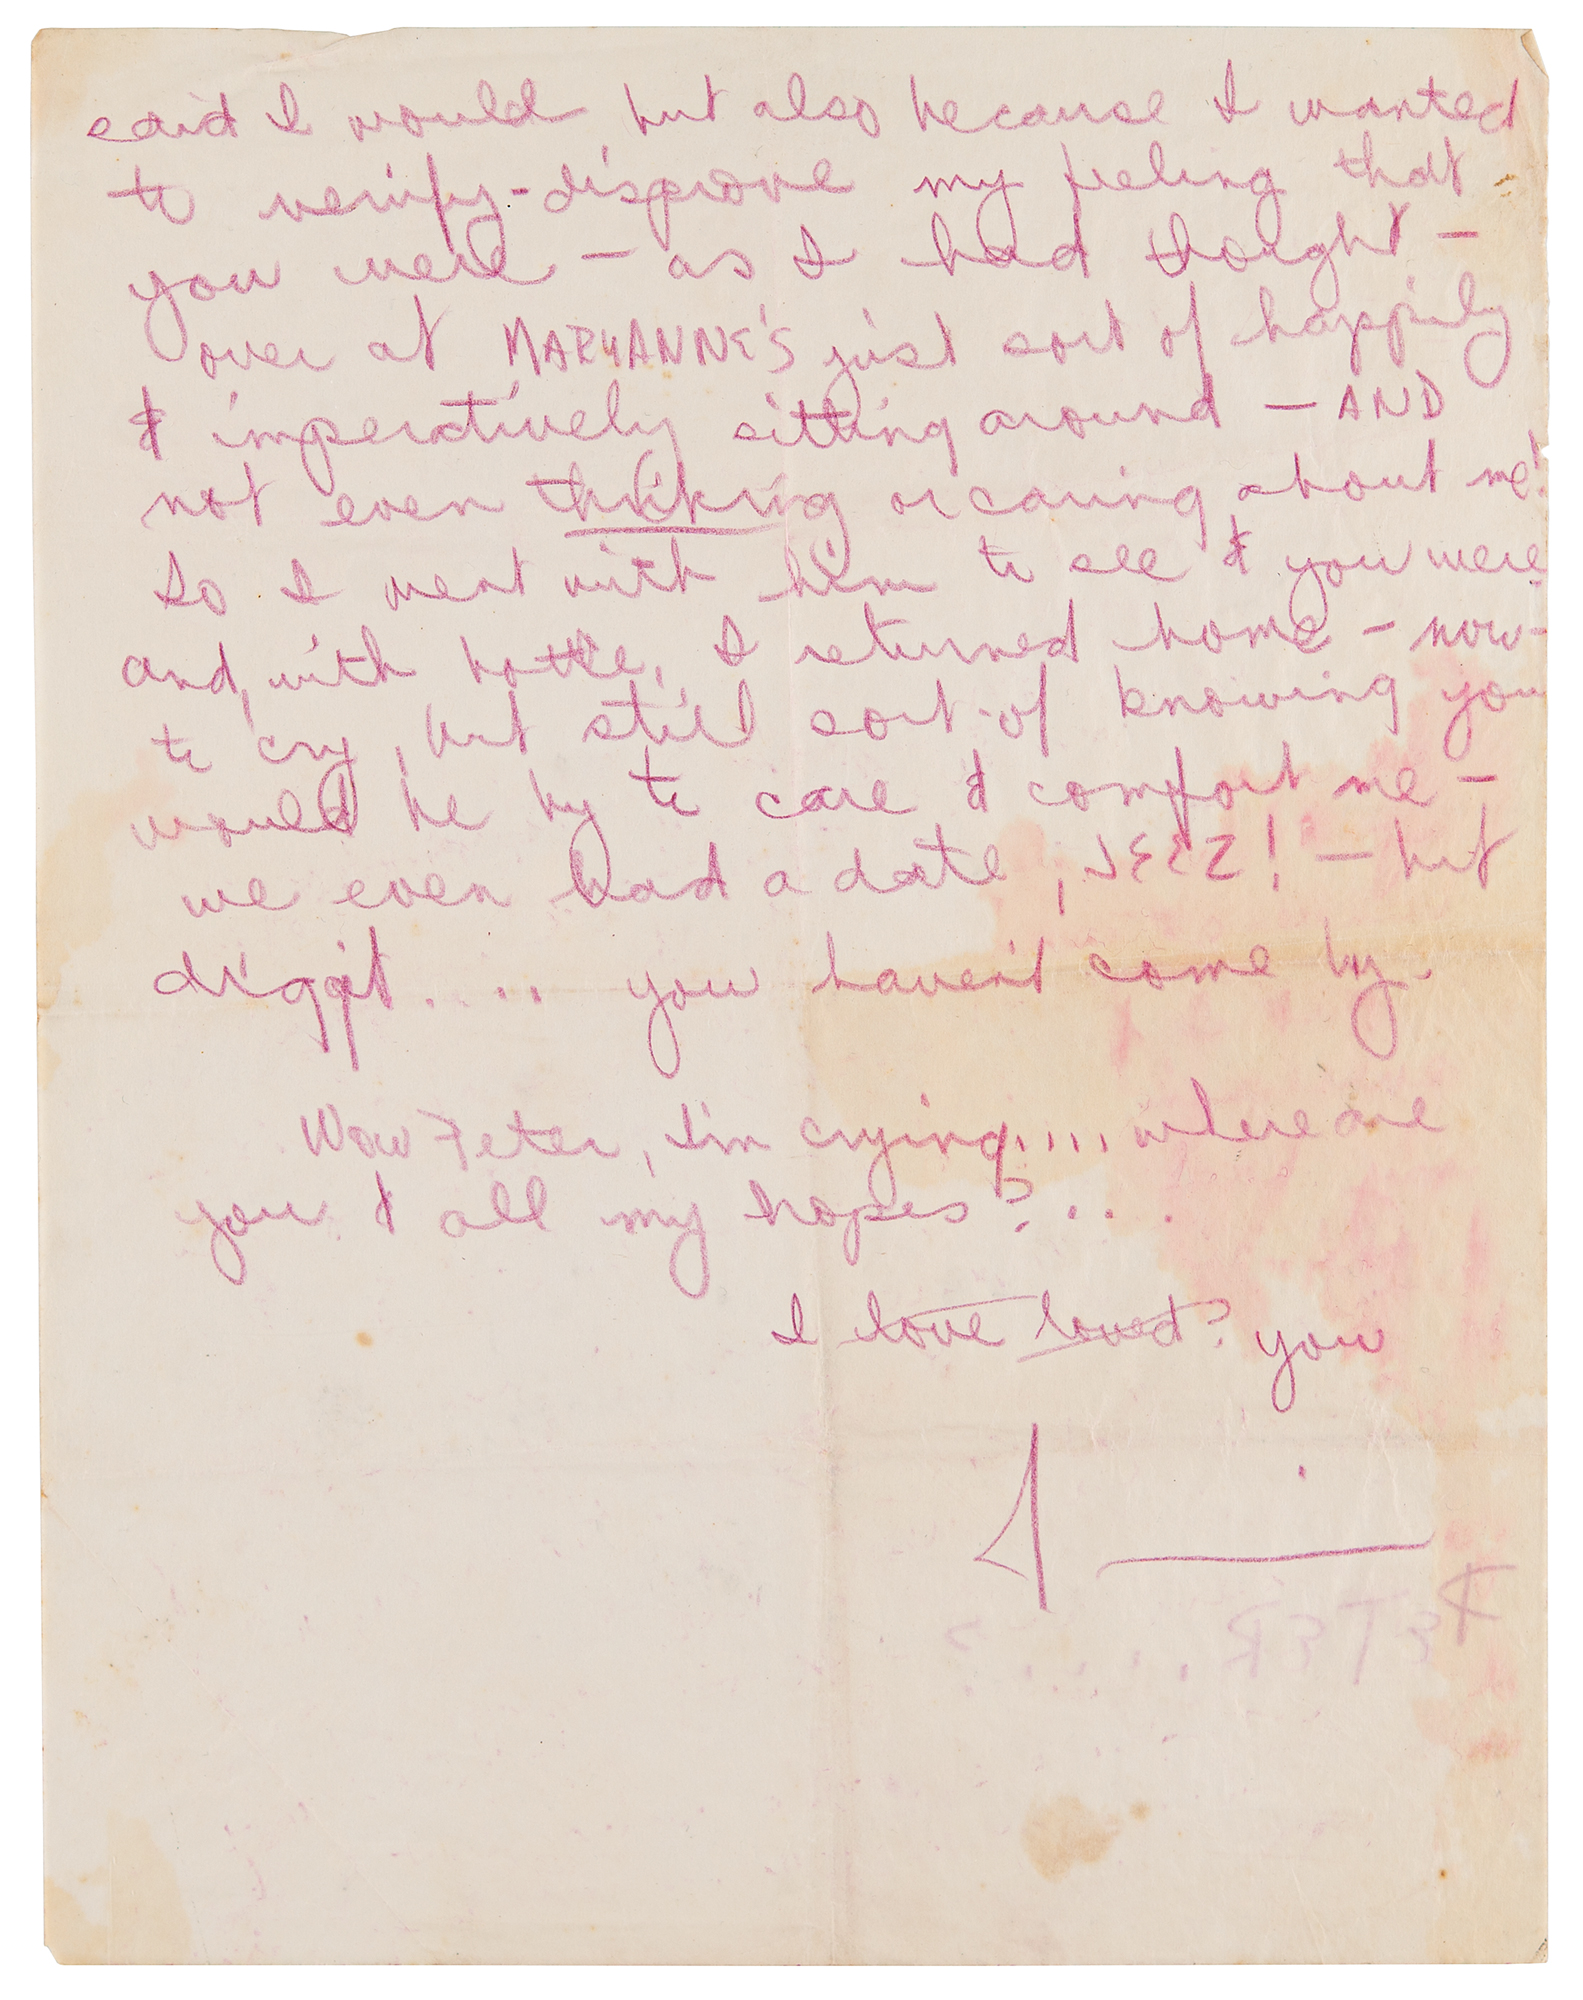 said I would but also because I wanted
to verify-disprove my feeling that
you were – as I had thought –
over at MARYANNE'S just sort of happily
& imperatively sitting around – AND
not even thinking or caring about me!
So I went with him to see & you were
and, with bottle, I returned home – now –
to cry, but still sort-of knowing you
would be by to care & comfort me –
we even had a date, JEEZ! – but
diggit..... you haven't come by.
Wow Peter, I'm crying..... where are
you & all my hopes?...
I love loved? you
J
PETER